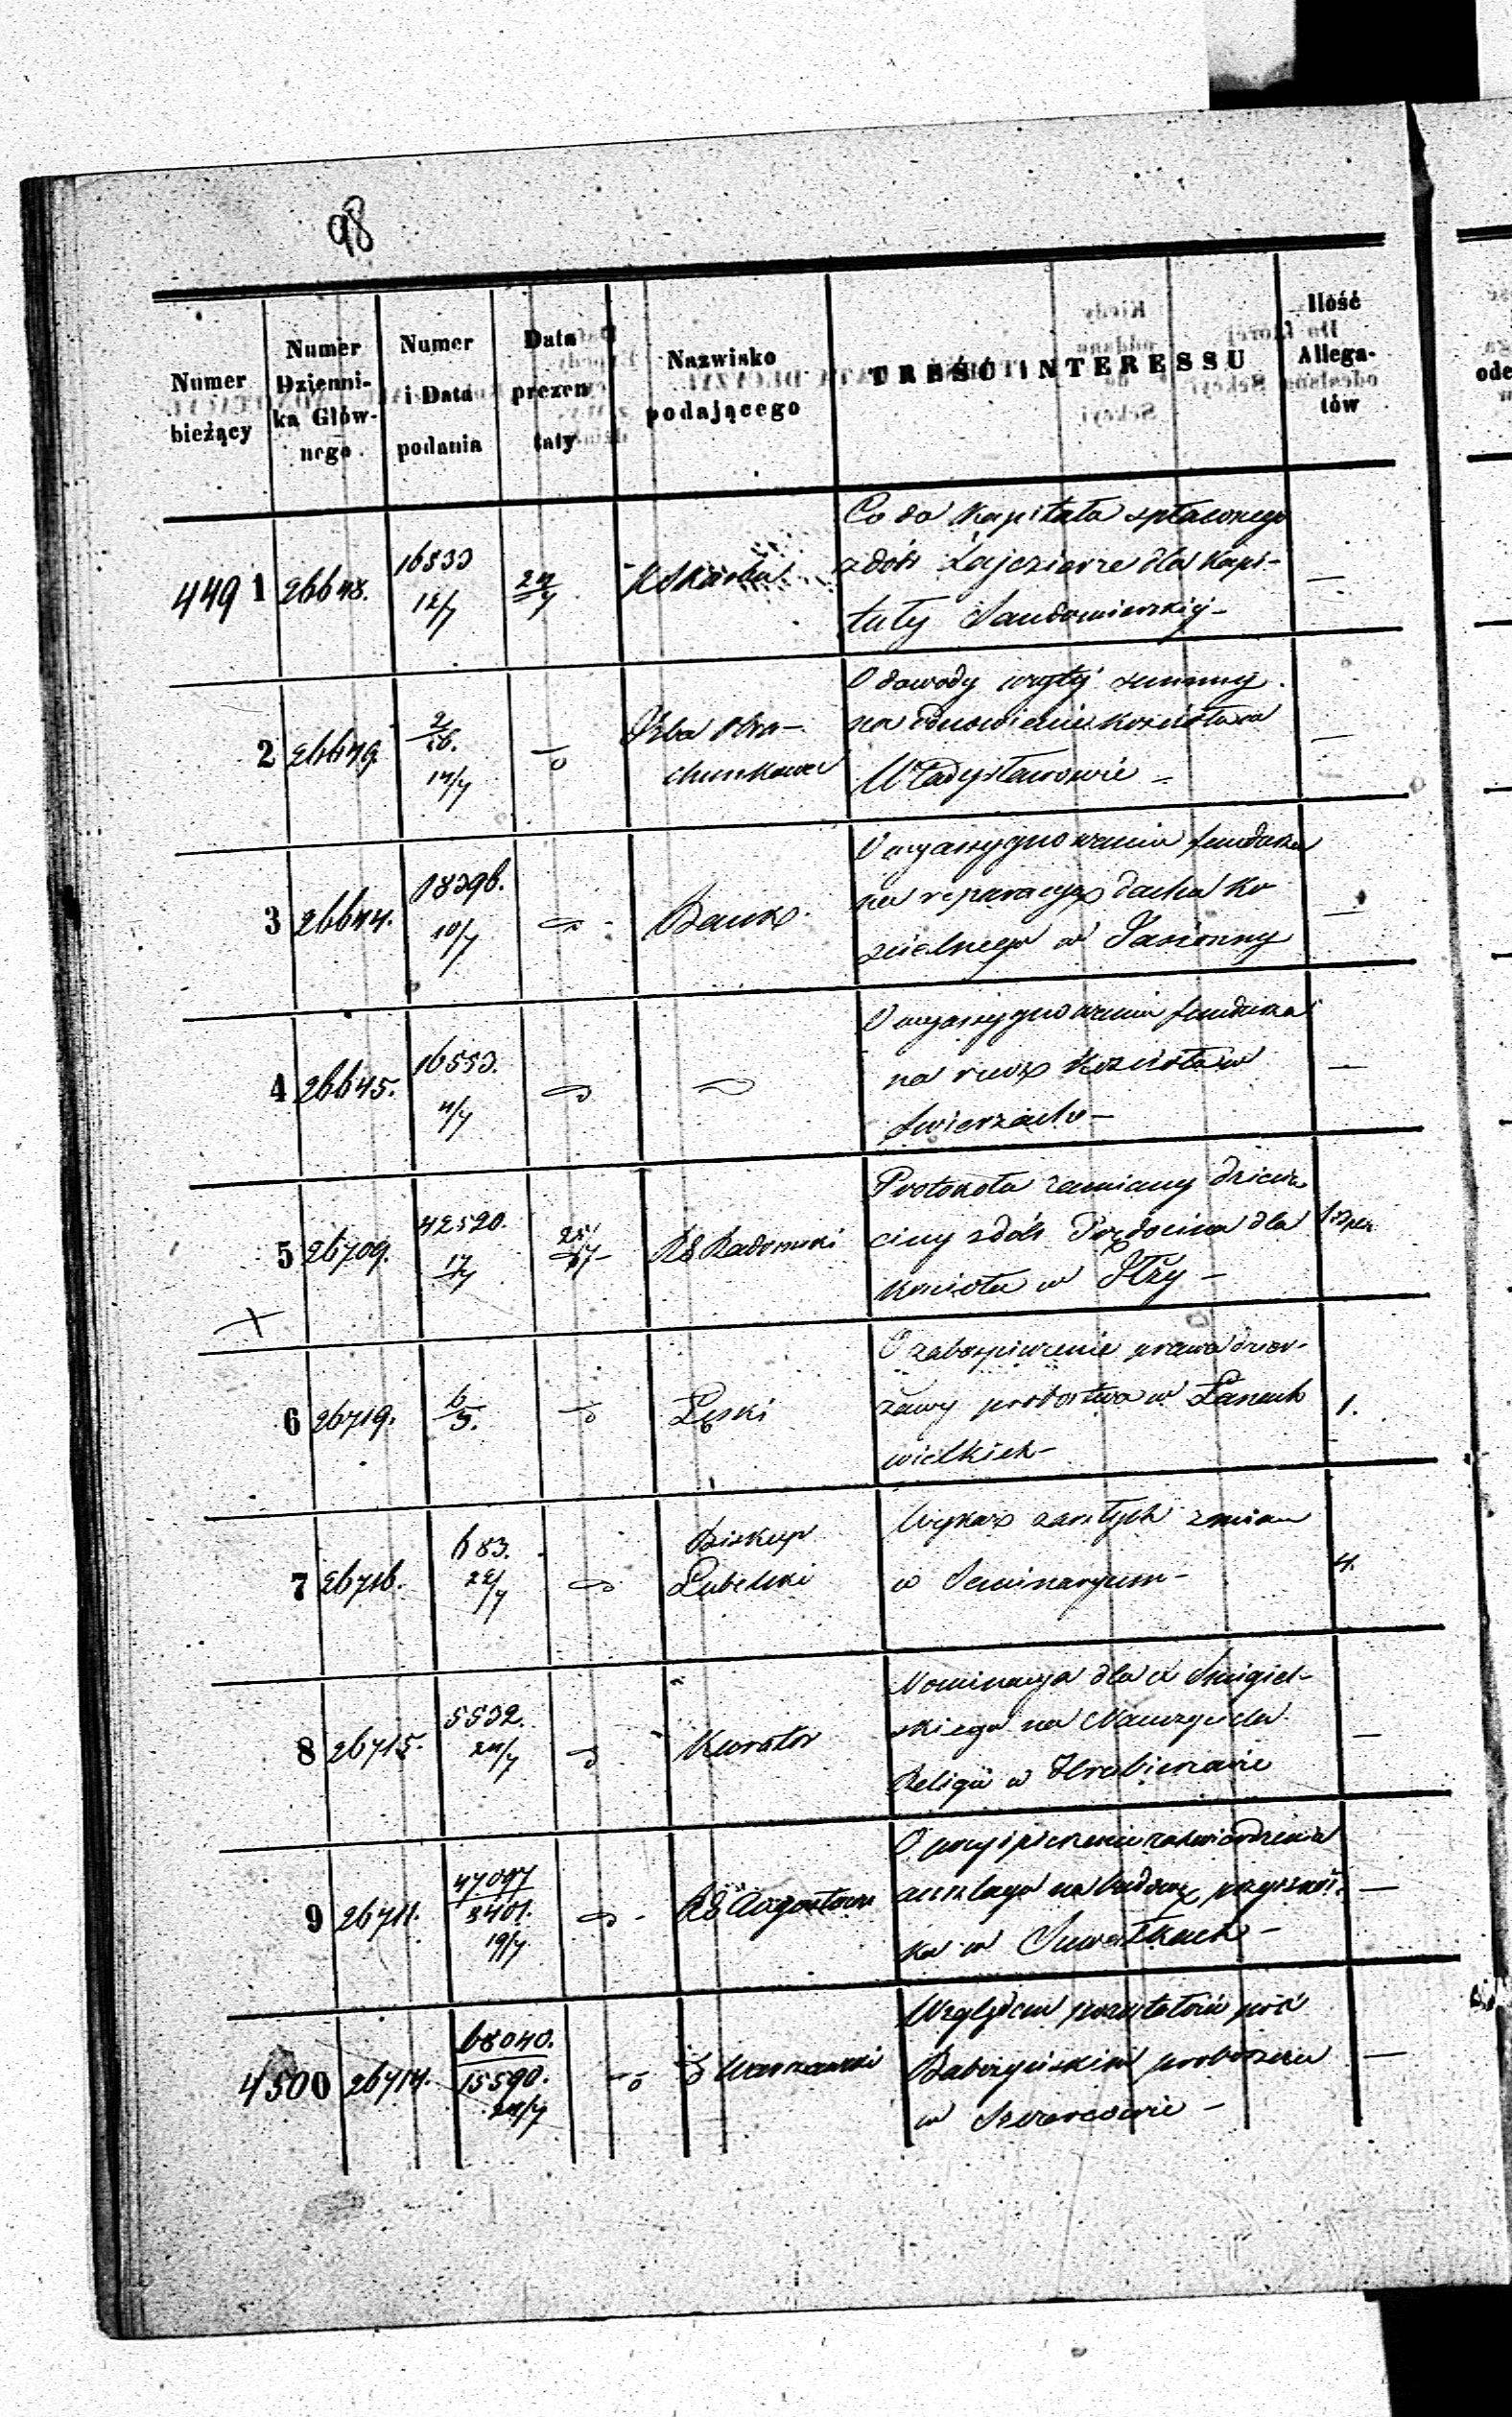 98
Numer bieżący
Numer Dziennika Głównego
Numer i Data podania
Data prezentaty
Nazwisko podającego
TREŚĆ INTERESSU
Ilość Allegatów
4491 26648. 16533 12/7 24/7 K Skarbu
Co do Kapitału spłaconego
z dób Zajezierze dla Kapi-
tuły Sandomierskiej -
2 26649. 14/7 Izba Obra-
chunkowa
O dowody użytej summy
na odnowienie kościoła w
Władysławowie -
3 26644. 18396. 10/7 Bank
O wyassygnowanie funduszu
na reparacyą dachu ko
ścielnego w Jasionny
4 26645. 16553. 11/7
O wyassygnowanie funduszu
na rzecz Kościoła w
Zwierzach -
5 26709. 42520. 17/7 25/7 RG Radomski
Protokoła zamiany dziesię
ciny z dób dla
kościoła w Iłży -
6 26719. 6/5. Łęski
O zabezpieczenie prawa dzier-
żawy probostwa w Łanach
wielkich - 1.
7 26716. 683. 22/7 Biskup
Lubelski
Wykaz zaszłych zmian
w Seminaryum - 4.
8 26715. 5532. 24/7 Kurator
Nominacya dla X Śmigiel-
skiego na Nauczyciela
Religii w Hrubieszowie
9 26711. 47097 3401. 19/7 RG Augustow
O przyśpieszenie zatwierdzenia
anszlagu na budowę
w Suwałkach -
4500 26714. 68040. 15590. 24/7 G Warszawski
Względem pozostałości po X
Babczyńskim proboszczu
w